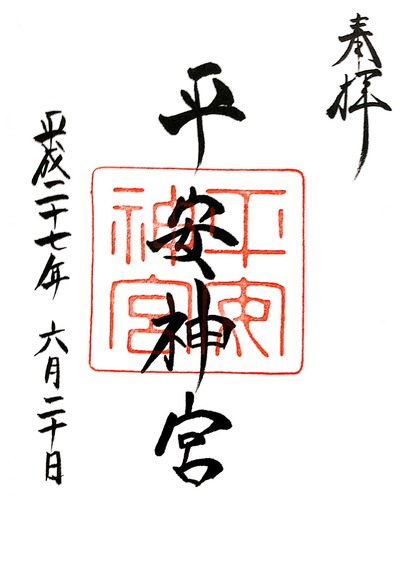 奉拝
平安神宮
平安神宮
平成二十七年 六月二十日